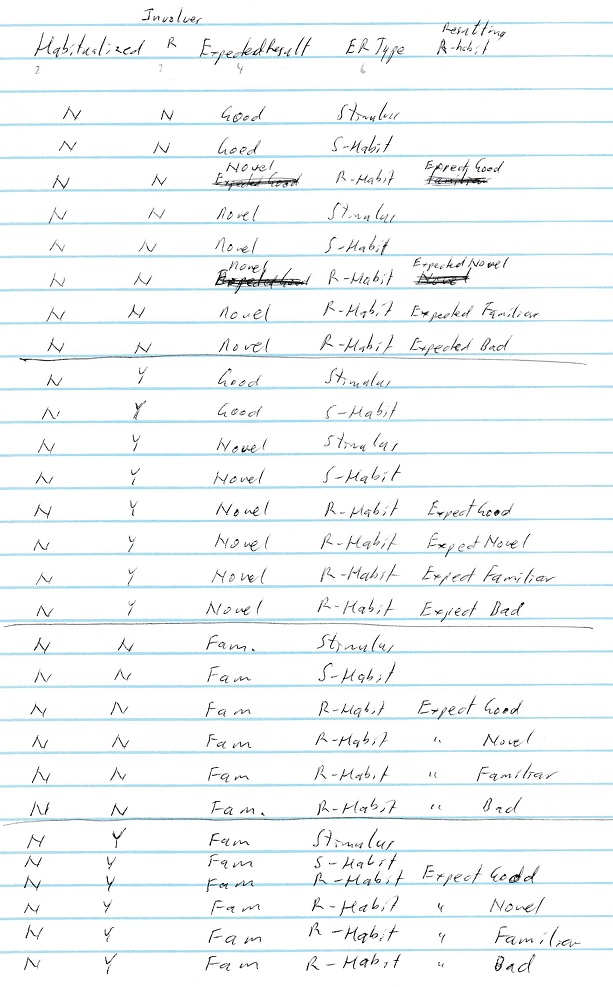 Involves Resulting
Habitualized R ExpectedResult ER Type R-habit
2 2 4 6
N N Good Stimulus
N N Good S-Habit
Novel Expect Good
N N Expected Good R-Habit Familiar
N N Novel Stimulus
N N Novel S-Habit
Novel Expected Novel
N N Expected Good R-Habit Novel
N N Novel R-Habit Expected Familiar
N N Novel R-Habit Expected Bad
N Y Good Stimulus
N Y Good S-Habit
N Y Novel Stimulus
N Y Novel S-Habit
N Y Novel R-Habit Expect Good
N Y Novel R-Habit Expect Novel
N Y Novel R-Habit Expect Familiar
N Y Novel R-Habit Expect Bad
N N Fam. Stimulus
N N Fam S-Habit
N N Fam R-Habit Expect Good
N N Fam R-Habit " Novel
N N Fam R-Habit " Familiar
N N Fam. R-Habit " Bad
N Y Fam Stimulus
N Y Fam S-Habit
N Y Fam R-Habit Expect Good
N Y Fam R-Habit " Novel
N Y Fam R-Habit " Familiar
N Y Fam R-Habit " Bad